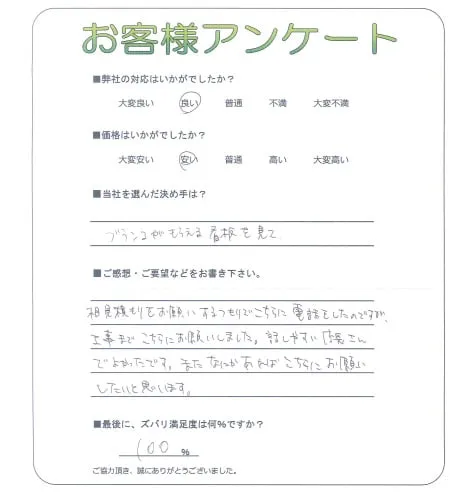 お客様アンケート
■弊社の対応はいかがでしたか？
大変良い 良い 普通 不満 大変不満
■価格はいかがでしたか？
大変安い 安い 普通 高い 大変高い
■当社を選んだ決め手は？
ブランコがもらえる看板を見て
■ご感想・ご要望などをお書き下さい。
相見積もりをお願いするつもりでこちらに電話をしたのですが、
工事までこちらにお願いしました。話しやすい さん
でよかったです。またなにかあればこちらにお願い
したいと思います。
■最後に、ズバリ満足度は何％ですか？
100 %
ご協力頂き、誠にありがとうございました。